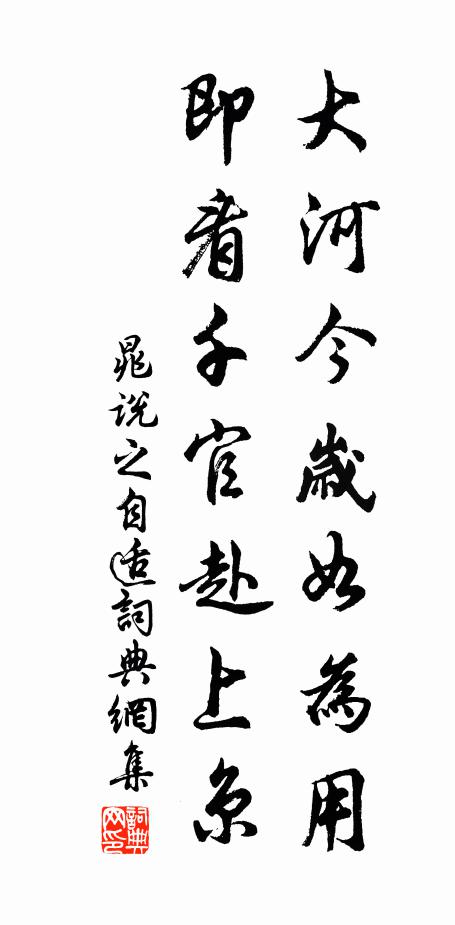 大河今歲如為用
即看千官赴上京
晁說之自適詞典網集
詞典网印